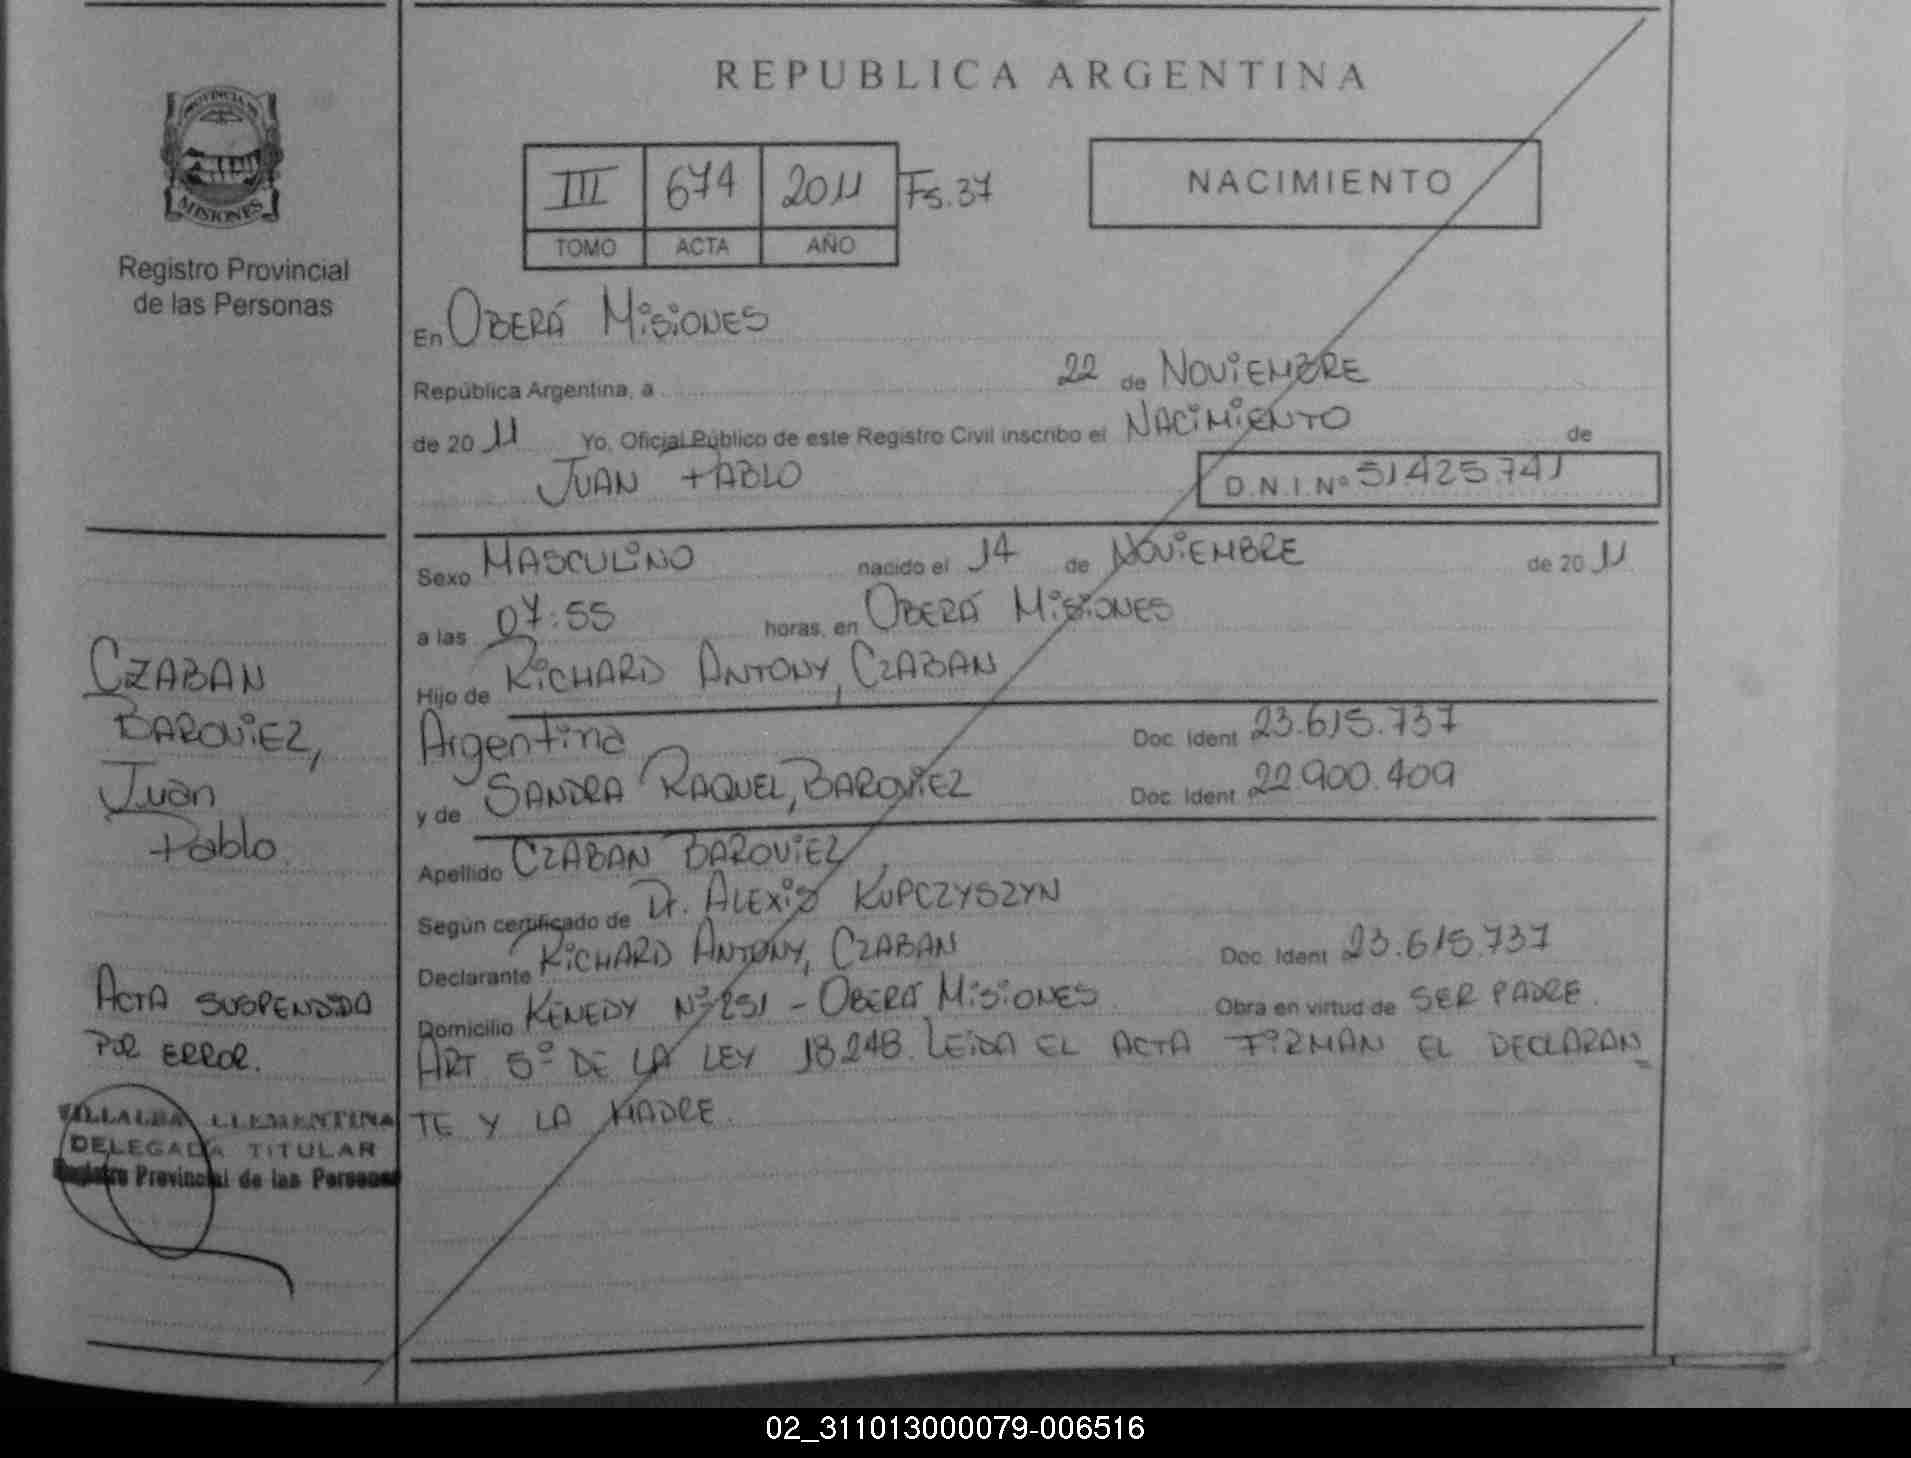 REPUBLICA ARGENTINA
PROVINCIA DE
MISIONES
Registro Provincial
de las Personas
III 674 2011 Fs. 37
TOMO ACTA AÑO
NACIMIENTO
En OBERÁ MISIONES
República Argentina, a 22 de NOVIEMBRE
de 20 11 Yo, Oficial Público de este Registro Civil inscribo el NACIMIENTO de
JUAN PABLO D.N.I.Nº 51425.741
Sexo MASCULINO nacido el 14 de NOVIEMBRE de 20 11
a las 07:55 horas, en OBERÁ MISIONES
Hijo de RICHARD ANTONY, CZABAN
Argentina Doc. Ident 23.615.737
y de SANDRA RAQUEL, BAROVIEZ Doc. Ident 22.900.409
Apellido CZABAN BAROVIEZ
Según certificado de Dr. ALEXIS KUPCZYSZYN
Declarante RICHARD ANTONY, CZABAN Doc. Ident 23.615.737
Domicilio KENEDY Nº 251 - OBERÁ MISIONES Obra en virtud de SER PADRE.
ART 5º DE LA LEY 18248. LEIDA EL ACTA FIRMAN EL DECLARAN
TE Y LA MADRE.
CZABAN
BAROVIEZ,
Juan
Pablo
ACTA SUSPENDIDA
POR ERROR.
VILLALBA CLEMENTINA
DELEGADA TITULAR
Registro Provincial de las Personas
02_311013000079-006516